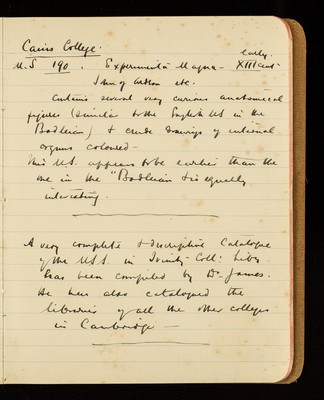 Caius College.
early
M.S 190. Experimenta Magna - XIII cent
etc.
contains several very curious anatomical
figures (similar to the English MS in the
Bodleian) & crude drawings of internal
organs coloured -
This MS. appears to be earlier than the
one in the "Bodleian & is equally
interesting.
A very complete & descriptive Catalogue
of the MSS. in Trinity Coll: Liby
has been compiled by Dr. James.
He has also catalogued the
libraries of all the other colleges
in Cambridge -